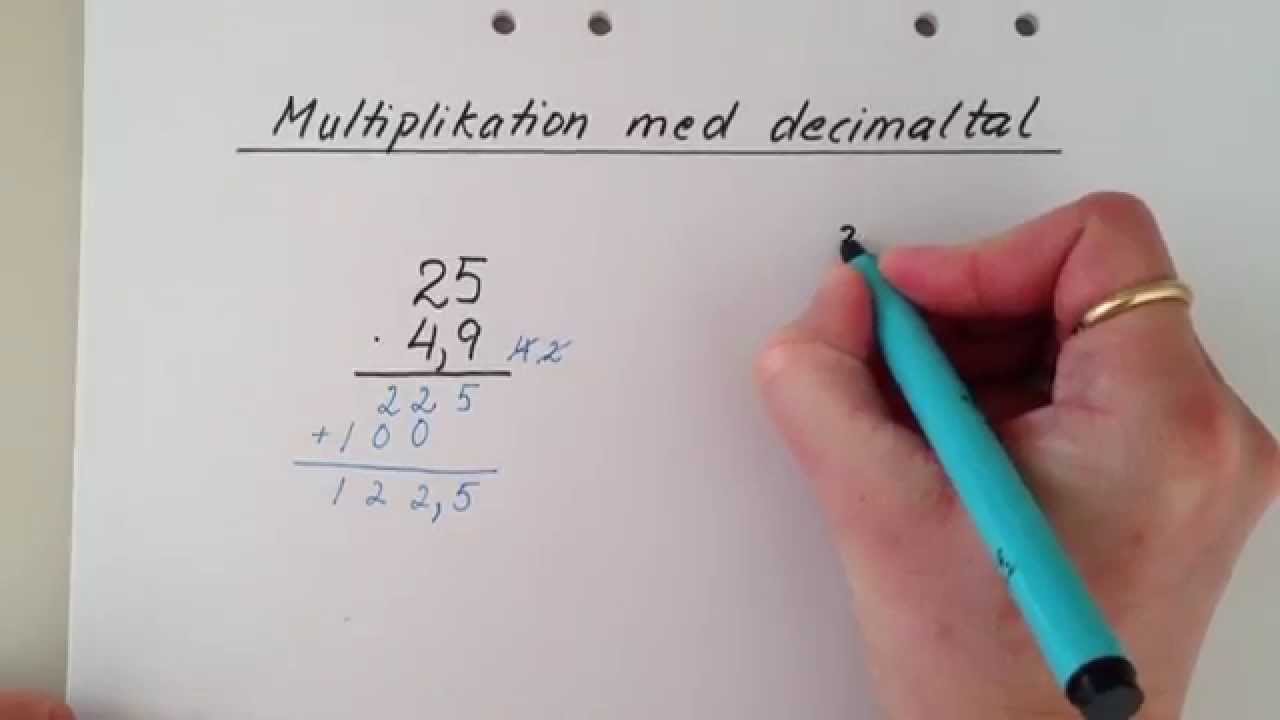 Multiplikation med decimaltal
25
· 4,9 4 2
225
+100
122,5
2